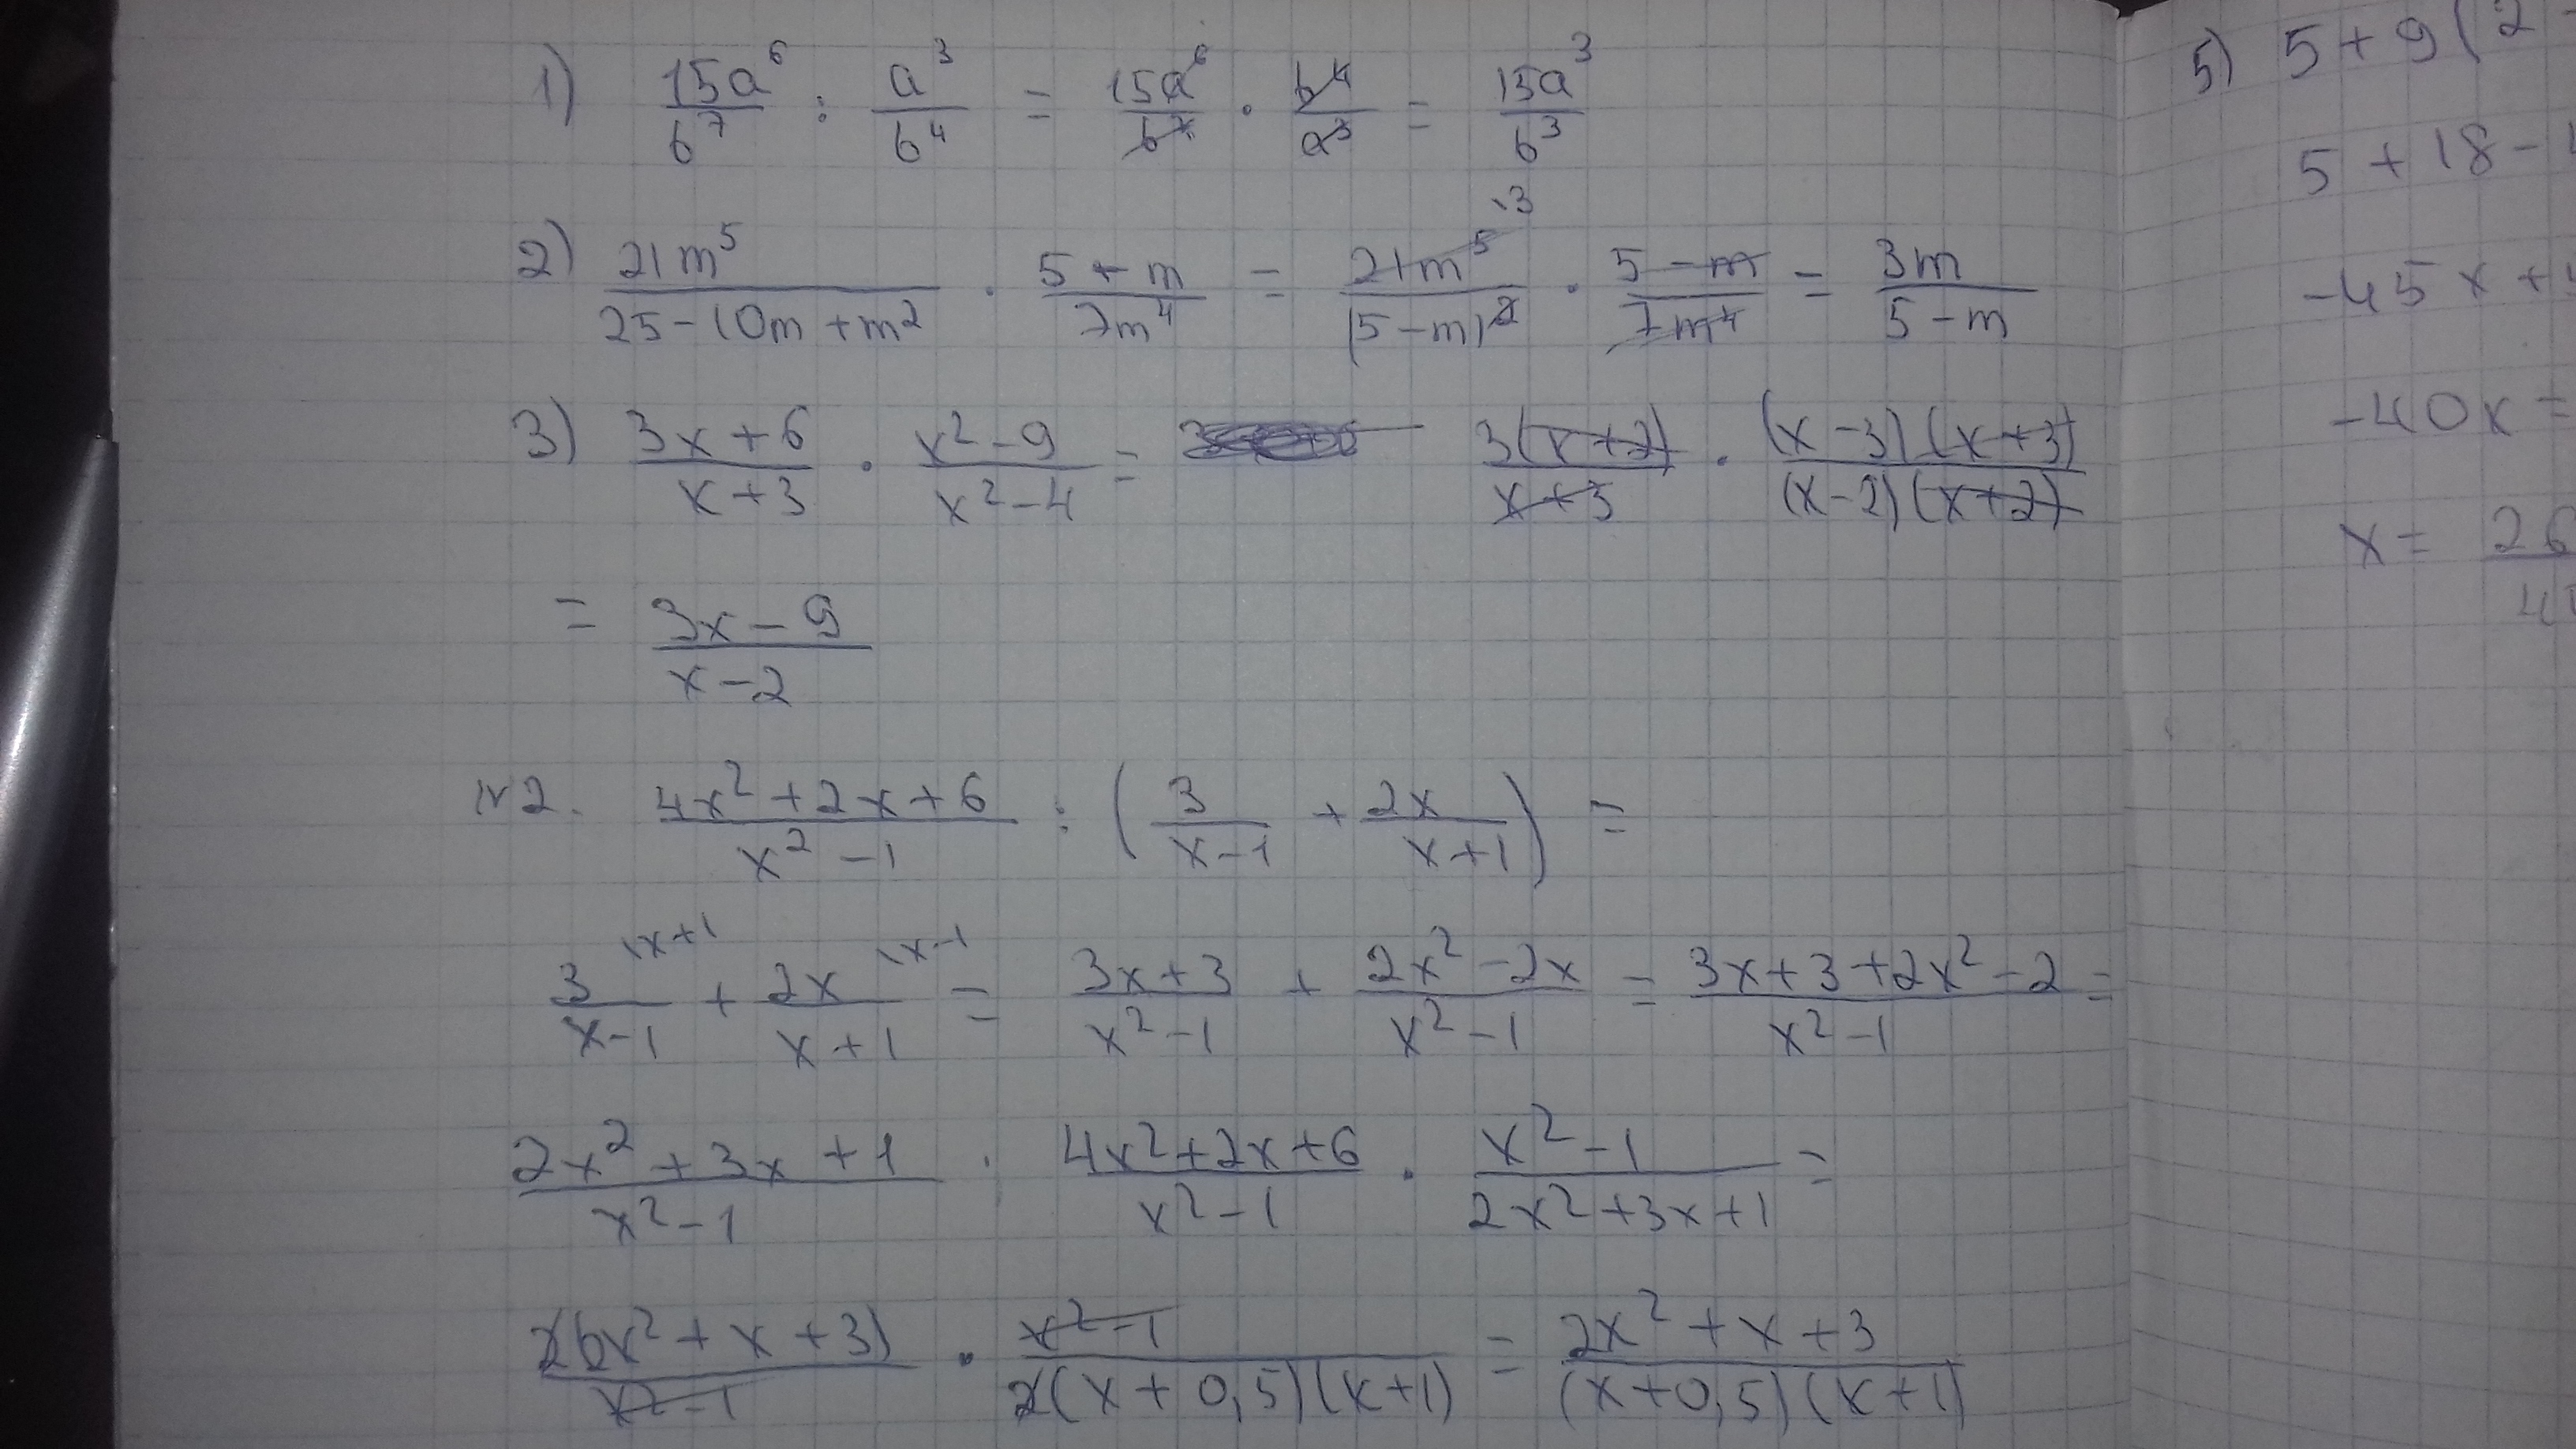 1) 15a⁶/b⁷ : a³/b⁴ = 15a⁶/b⁷ · b⁴/a³ = 15a³/b³
2) 21m⁵/(25-10m+m²) · (5-m)/7m⁴ = 21m⁵/(5-m)² \3 · (5-m)/7m⁴ = 3m/(5-m)
3) (3x+6)/(x+3) · (x²-9)/(x²-4) = 3(x+2)/(x+3) · (x-3)(x+3)/(x-2)(x+2)
= (3x-9)/(x-2)
N2. (4x²+2x+6)/(x²-1) : (3/(x-1) + 2x/(x+1)) =
3/(x-1) \x+1 + 2x/(x+1) \x-1 = (3x+3)/(x²-1) + (2x²-2x)/(x²-1) = (3x+3+2x²-2)/(x²-1) =
(2x²+3x+1)/(x²-1) · (4x²+2x+6)/(x²-1) · (x²-1)/(2x²+3x+1) =
2(6x²+x+3)/(x²-1) · (x²-1)/2(x+0,5)(x+1) = (2x²+x+3)/(x+0,5)(x+1)
5) 5+9(2
5+18-
-45x+
-40x=
x= 26/4